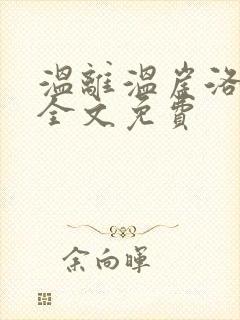 溫離溫崖洛
全文免費
余向暉